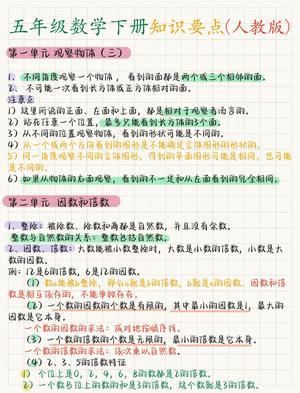 五年级数学下册知识要点(人教版)
第一单元 观察物体（三）
1、不同角度观察一个物体，看到的面都是两个或三个相邻的面。
2、不可能一次看到长方体或正方体相对的面。
注意点
1）这里所说的正面、左面和上面，都是相对于观察者而言的。
2）站在任意一个位置，最多只能看到长方体的3个面。
3）从不同的位置观察物体，看到的形状可能是不同的。
4）从一个或两个方向看到的图形是不能确定立体图形的形状的。
5）同一角度观察不同的立体图形，得到的平面图形可能是相同，也可能
是不同的。
6）如果从物体的右面观察，看到的不一定和从左面看到的完全相同。
第二单元 因数和倍数
1、整除：被除数、除数和商都是自然数，并且没有余数。
整数与自然数的关系：整数包括自然数。
2、因数、倍数：大数能被小数整除时，大数是小数的倍数，小数是大
数的因数。
例：12是6的倍数，6是12的因数。
（1）数a能被b整除，那么a就是b的倍数，b就是a的因数。因数和倍
数是相互依存的，不能单独存在。
（2）一个数的因数的个数是有限的，其中最小的因数是1，最大的
因数是它本身。
一个数的因数的求法：成对地按顺序找。
（3）一个数的倍数的个数是无限的，最小的倍数是它本身。
一个数的倍数的求法：依次乘以自然数。
（4）2、3、5的倍数特征
1）个位上是0，2，4，6，8的数都是2的倍数。
2）一个数各位上的数的和是3的倍数，这个数就是3的倍数。